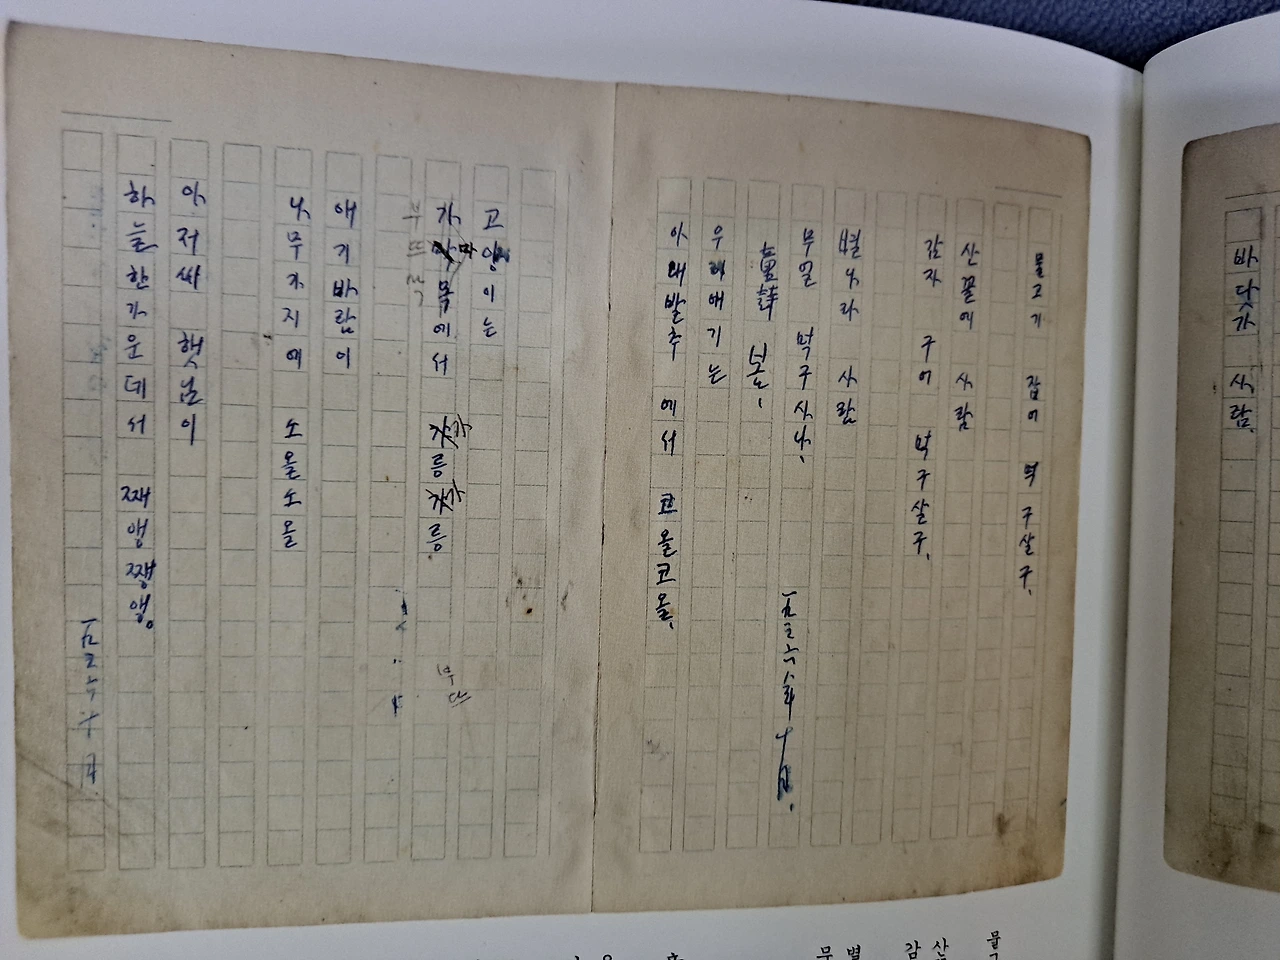 바닷가 사람,
물고기 잡아 먹구 살구,
산꼴에 사람
감자 구어 먹구 살구,
별나라 사람
무얼 먹구 사나,
一九三六年十月.
童詩 봄,
우리애기는
아래발추에서 코올코올,
고양이는
가마목에서 가릉가릉
부뜨막
애기바람이
나무가지에 소올소올
아저씨 햇님이
하늘한가운데서 째앵째앵。
十月.
물
산
감
별
무